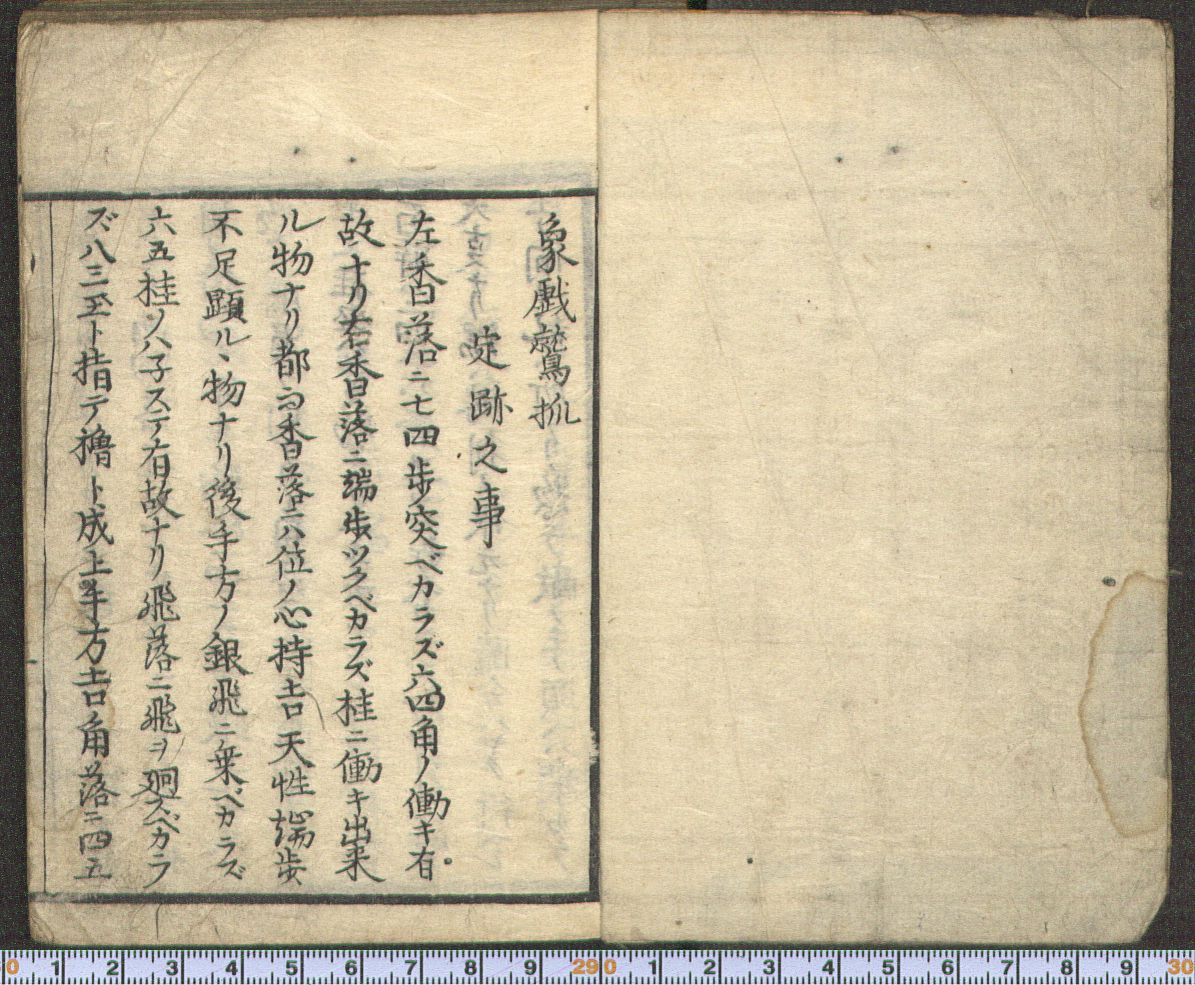 象戯鵞抓
定跡之事
左香落ニ七四歩ノ突ベカラズ六四角ノ働キ有
故ナリ右香落ニ端歩ツクベカラズ桂ニ働キ出来
ル物ナリ都而香落ニハ位ノ心持吉天性端歩
不足顕ルヽ物ナリ後手方ノ銀飛ニ乗ベカラズ
六五桂ノハ子ステ有故ナリ飛落ニ飛ヲ廻スベカラ
ズ八三玉ト指テ櫓ト成上手方吉角落ニ四五
0 1 2 3 4 5 6 7 8 9 29 0 1 2 3 4 5 6 7 8 9 30